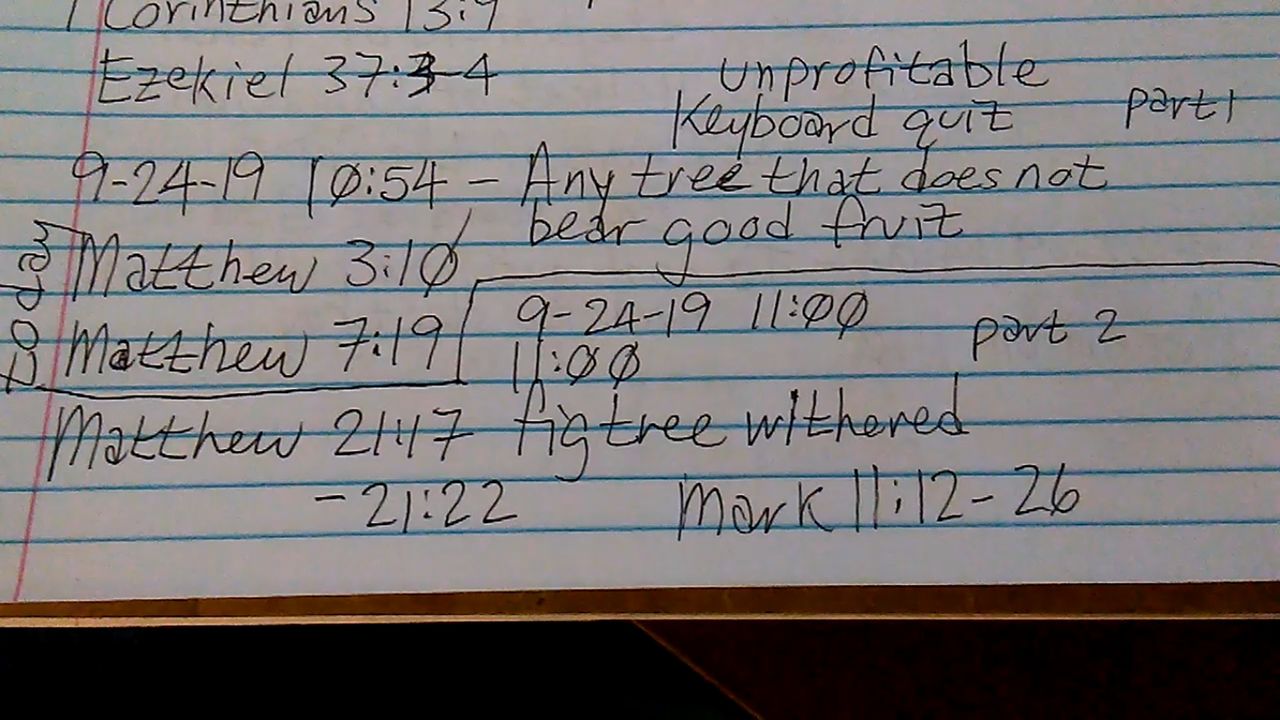 1 Corinthians 13:9
Ezekiel 37:3-4
unprofitable
Keyboard quit part 1
9-24-19 10:54 - Any tree that does not
bear good fruit
Matthew 3:10
Matthew 7:19
9-24-19 11:00
11:00
part 2
Matthew 21:17 fig tree withered
-21:22 Mark 11:12-26